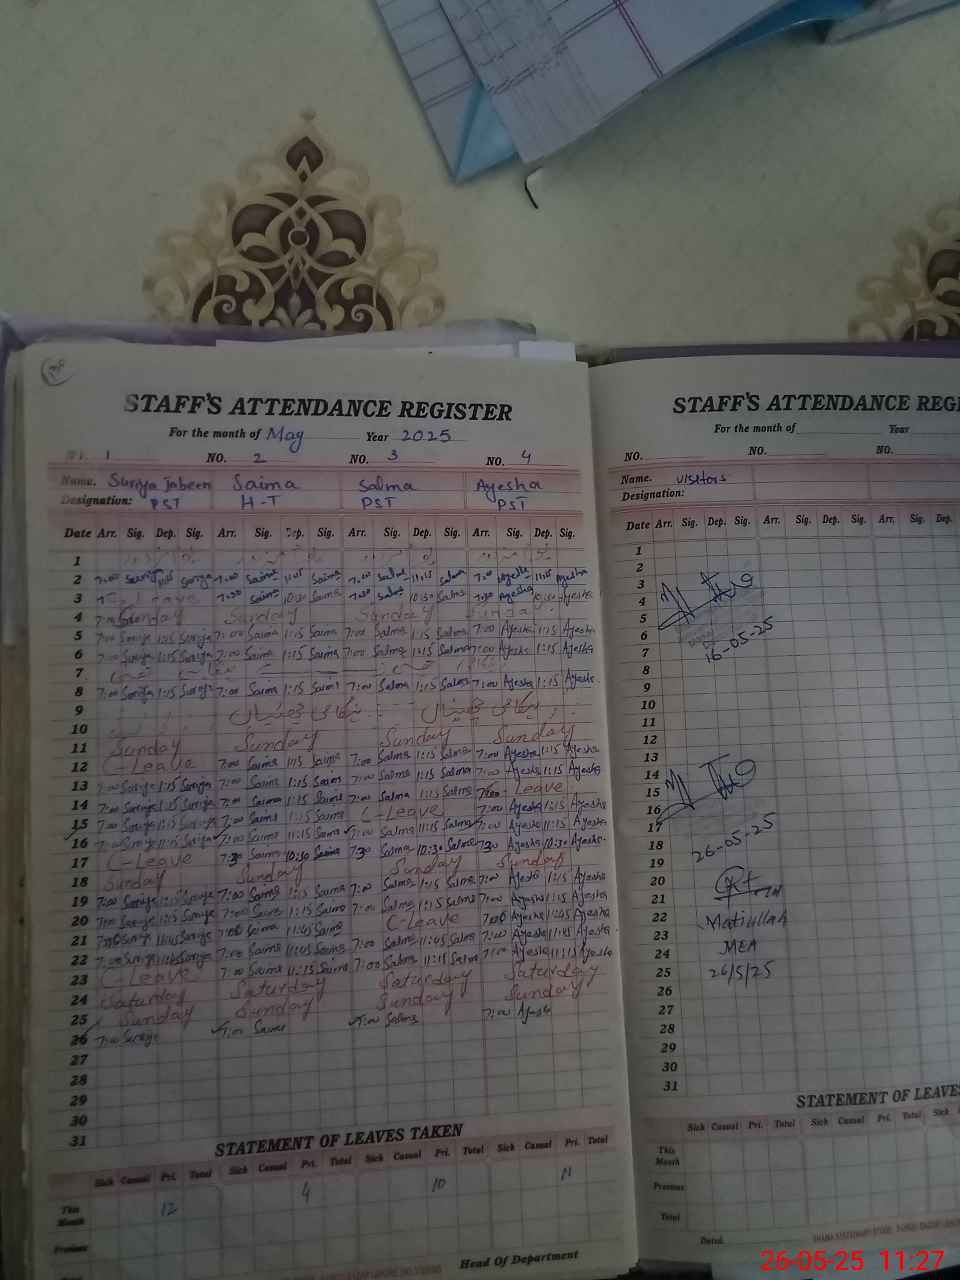 STAFF'S ATTENDANCE REGISTER
For the month of May Year 2025
1 NO. 2 NO. 3 NO. 4
Name. Suriya Jabeen Saima Salma Ayesha
Designation: PST H-T PST PST
Date Arr. Sig. Dep. Sig. Arr. Sig. Dep. Sig. Arr. Sig. Dep. Sig. Arr. Sig. Dep. Sig.
1
2 7:00 Suriya Suriya 7:00 Saima 11:15 Saima 7:00 Salma 11:15 Salma 7:00 Ayesha 11:15 Ayesha
3 7:30 Saima 10:30 Saima 7:30 Salma 10:30 Salma 7:30 Ayesha 10:30 Ayesha
4 7:00 Sunday Sunday Sunday Sunday
5 7:00 Suriya 1:15 Suriya 7:00 Saima 1:15 Saima 7:00 Salma 1:15 Salma 7:00 Ayesha 1:15 Ayesha
6 7:00 Suriya 1:15 Suriya 7:00 Saima 1:15 Saima 7:00 Salma 1:15 Salma 7:00 Ayesha 1:15 Ayesha
7
8 7:00 Suriya 1:15 Suriya 7:00 Saima 1:15 Saima 7:00 Salma 1:15 Salma 7:00 Ayesha 1:15 Ayesha
9 ہنگامی چھٹیاں ہنگامی چھٹیاں
10
11 Sunday Sunday Sunday Sunday
12 C-Leave 7:00 Saima 1:15 Saima 7:00 Salma 1:15 Salma 7:00 Ayesha 1:15 Ayesha
13 7:00 Suriya 1:15 Suriya 7:00 Saima 1:15 Saima 7:00 Salma 1:15 Salma 7:00 Ayesha 1:15 Ayesha
14 7:00 Suriya 1:15 Suriya 7:00 Saima 1:15 Saima 7:00 Salma 1:15 Salma 7:00 Leave
15 7:00 Suriya 1:15 Suriya 7:00 Saima 1:15 Saima C-Leave 7:00 Ayesha 1:15 Ayesha
16 7:00 Suriya 11:15 Suriya 7:00 Saima 11:15 Saima 7:00 Salma 11:15 Salma 7:00 Ayesha 11:15 Ayesha
17 C-Leave 7:30 Saima 10:30 Saima 7:30 Salma 10:30 Salma 7:30 Ayesha 10:30 Ayesha
18 Sunday Sunday Sunday Sunday
19 7:00 Suriya 1:15 Suriya 7:00 Saima 1:15 Saima 7:00 Salma 1:15 Salma 7:00 Ayesha 1:15 Ayesha
20 7:00 Suriya 1:15 Suriya 7:00 Saima 1:15 Saima 7:00 Salma 1:15 Salma 7:00 Ayesha 1:15 Ayesha
21 7:00 Suriya 11:45 Suriya 7:00 Saima 11:45 Saima C-Leave 7:00 Ayesha 11:45 Ayesha
22 7:00 Suriya 11:45 Suriya 7:00 Saima 11:45 Saima 7:00 Salma 11:45 Salma 7:00 Ayesha 11:45 Ayesha
23 C-Leave 7:00 Saima 11:15 Saima 7:00 Salma 11:15 Salma 7:00 Ayesha 11:15 Ayesha
24 Saturday Saturday Saturday Saturday
25 Sunday Sunday Sunday Sunday
26 7:00 Suriya 7:00 Saima 7:00 Salma 7:00 Ayesha
27
28
29
30
31
STATEMENT OF LEAVES TAKEN
Sick Casual Pri. Total Sick Casual Pri. Total Sick Casual Pri. Total Sick Casual Pri. Total
This Month 12 4 10 11
Previous
Head Of Department
STAFF'S ATTENDANCE REGI
For the month of Year
NO. NO. NO.
Name. Visitors
Designation:
Date Arr. Sig. Dep. Sig. Arr. Sig. Dep. Sig. Arr. Sig. Dep.
1
2
3
4
5
6
7 16-05-25
8
9
10
11
12
13
14
15
16
17
18 26-05-25
19
20
21
22 Matiullah
23
24 MEA
25 26/5/25
26
27
28
29
30
31
STATEMENT OF LEAVE
Sick Casual Pri. Total Sick Casual Pri. Total Sick
This Month
Previous
Total
Dated
26-05-25 11:27